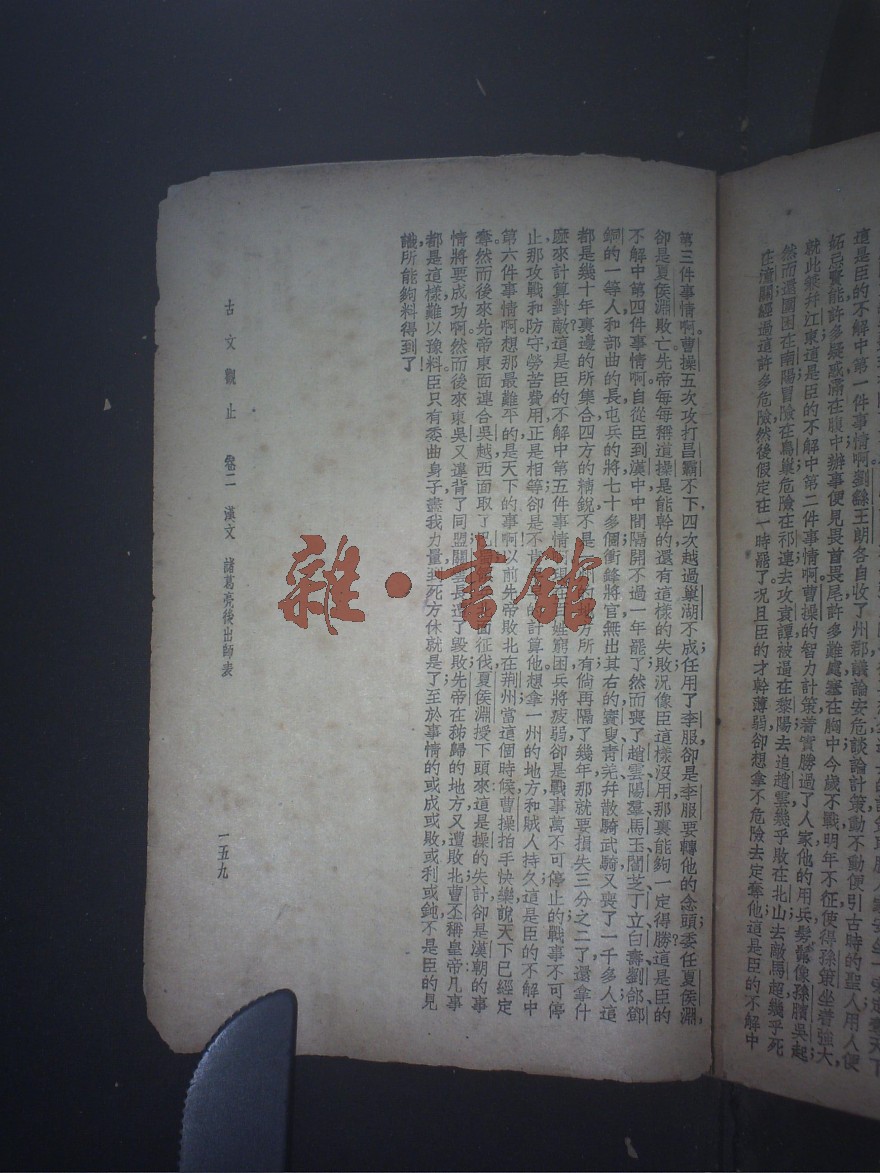 這是臣的不解中第一件事情啊劉繇王朗各自收了州郡議論安危談論計策動不動便引古時的聖人用人便
妬忌賢能許多疑惑滿在腹中辦事便見畏首畏尾許多難處塞在胸中今歲不戰明年不征使得孫策坐着強大,
就此槳并江東這是臣的不解中第二件事情啊曹操的智力計策着實勝過了人家他的用兵髣髴像孫臏吳起
然而還圍困在南陽冒險在烏巢危險在祁連去攻袁譚被逼在黎陽去追趙雲幾乎敗在北山去敵馬超幾乎死
在潼關經過這許多危險然後假定在一時罷了况且臣的才幹薄弱卻想拿不危險去定奪他這是臣的不解中
第三件事情啊。曹操五次攻打昌霸不下,四次越過巢湖不成;任用了李服,卻是李服要轉他的念頭;委任夏侯淵,
卻是夏侯淵敗亡先帝每每稱道操是能幹的還有這樣的失敗況像臣這樣沒用那裏能夠一定得勝?這是臣的
不解中第四件事情啊。自從臣到漢中中間隔開不過一年罷了然而喪了趙雲、陽羣、馬玉、閻芝、丁立、白壽、劉郃、鄧
銅的一等人和部曲的長屯兵的將七十多個衝鋒將官無出其右的竇叟青羌幷散騎武騎又喪了一千多人這
都是幾十年裏邊的所集合四方的精銳不是 方所有倘再隔了幾年那就要損失三分之二了還拿什
麼來計算對敵?這是臣的不解中第五件事情 姓窮困兵將疲弱卻是戰事萬不可停止的戰事不可停
止那攻戰和防守勞苦費用正是相等卻是不 的計算他想拿一州的地方和賊人持久這是臣的不解中
第六件事情啊想那最難平的是天下的事啊!以前先帝敗北在荆州當這個時候曹操拍手快樂說天下已經定
奪。然而後來先帝東面連合吳越西面取了 面征伐夏侯淵授下頭來這是操的失計卻是漢朝的事
情將要成功啊然而後來東吳又違背了同盟關雲長遭了毀敗先帝在秭歸的地方又遭敗北曹丕稱皇帝凡事
都是這樣難以豫料。臣只有委曲身子盡我力量到死方休就是了;至於事情的或成或敗或利或鈍不是臣的見
識所能夠料得到了!
古文觀止 卷二 漢文 諸葛亮後出師表 一五九
雜·書館